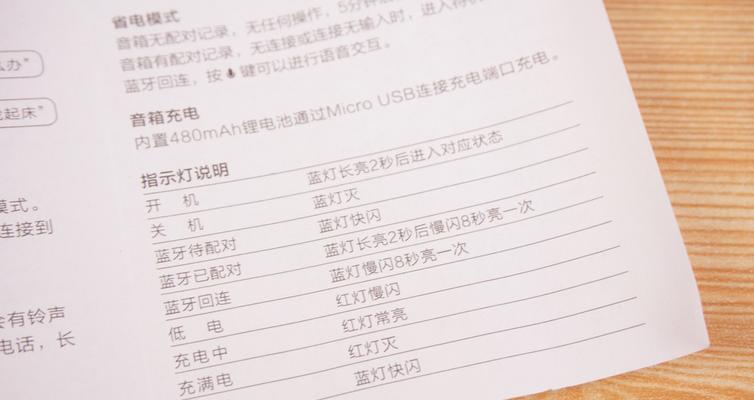 么办"
起床"
模式。
连接到
会有铃声
电话，长
省电模式
音箱无配对记录，无任何操作，5分钟
音箱有配对记录，无连接或连接无输入时，进入待
蓝牙回连，按 键可以进行语音交互。
音箱充电
内置480mAh锂电池通过Micro USB连接充电端口充电。
指示灯说明
开 机 蓝灯长亮2秒后进入对应状态
关 机 蓝灯灭
蓝牙待配对 蓝灯快闪
蓝牙已配对 蓝灯长亮2秒后慢闪8秒亮一次
蓝牙回连 蓝灯慢闪8秒亮一次
低 电 红灯慢闪
充电中 红灯常亮
充满电 红灯灭
蓝灯快闪